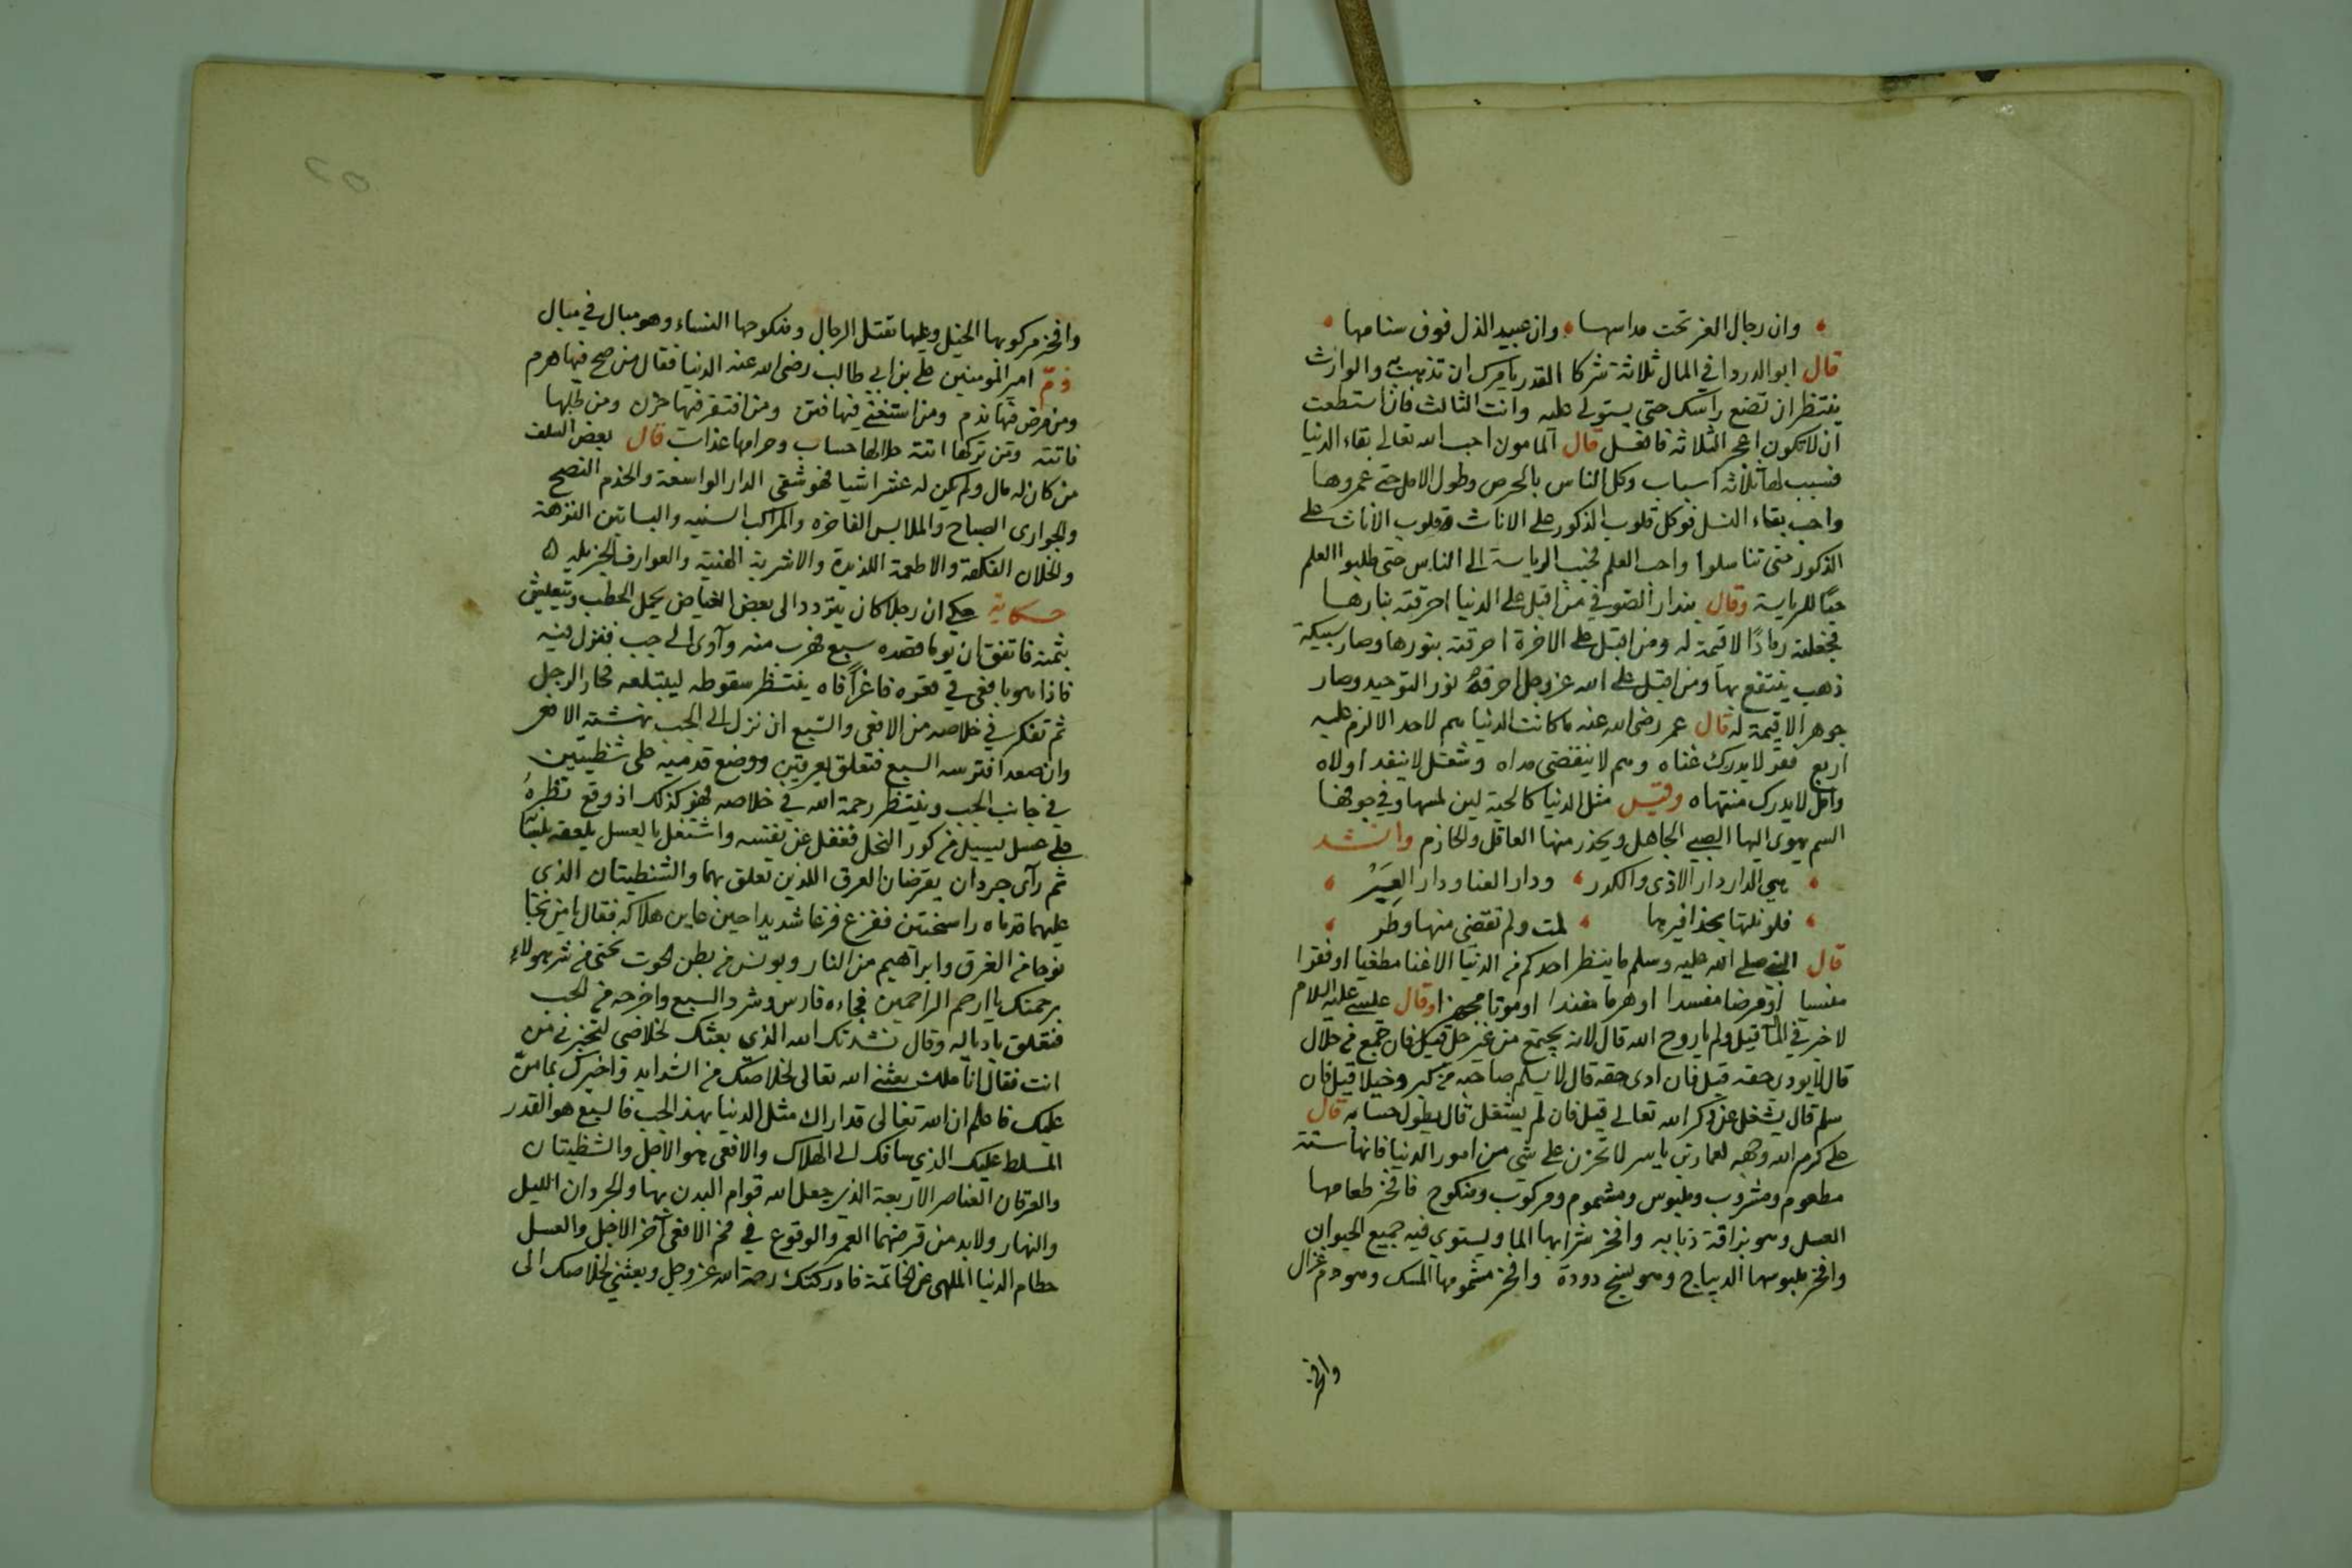 وان رجال العز تحت مداسها وان عبيد الذل فوق سنامها
قال ابو الدرداء في المال ثلاثة شركا القدر يامرك ان تذهب به والوارث
ينتظر ان تضع راسك حتى يستولى عليه وانت الثالث فان استطعت
ان لا تكون اعجز الثلاثة فافعل قال المامون احب الله تعالى بقاء الدنيا
فسبب لها ثلاثة اسباب وكل الناس بالحرص وطول الامل حتى عمروها
واحب بقاء النسل فوكل قلوب الذكور على الاناث وقلوب الاناث على
الذكور حتى تناسلوا واحب العلم فحبب الرياسة الى الناس حتى طلبوا العلم
حبًا للرياسة وقال بندار الصوفي من اقبل على الدنيا احرقته بنارها
فجعلته رمادًا لا قيمة له ومن اقبل على الاخرة احرقته بنورها وصار سبيكة
ذهب ينتفع بها ومن اقبل على الله عز وجل احرقه نور التوحيد وصار
جوهر الا قيمة له قال عمر رضى الله عنه ما كانت الدنيا هم لاحد الا لزم عليه
اربع فقر لا يدرك غناه وهم لا ينقضى مداه وشغل لا ينفد اولاه
وامل لا يدرك منتهاه وقيل مثل الدنيا كالحية لين لمسها وفي جوفها
السم يهوى اليها الصبي الجاهل ويحذر منها العاقل والحازم وانشد
هي الدار دار الاذى والكدر ودار الفنا ودار العِبَرْ
فلو نلتها بحذافيرها لمت ولم تقضى منها وطر
قال النبي صلى الله عليه وسلم ما ينتظر احدكم من الدنيا الا غنا مطغيا او فقرا
منسيا او مرضا مفسدا او هرما مفندا او موتا مجهزا وقال عيسى عليه السلام
لا خير في المال قيل ولم يا روح الله قال لانه يجتمع من غير حل قيل فان جمع من حلال
قال لا يودى حقه قيل فان ادى حقه قال لا يسلم صاحبه من كبر وخيلا قيل فان
سلم قال يشغل عن ذكر الله تعالى قيل فان لم يشتغل قال يطول حسابه قال
على كرم الله وجهه لعمار بن ياسر لا تحزن على شي من امور الدنيا فانها ستة
مطعوم ومشروب وملبوس ومشموم ومركوب ومنكوح فافخر طعامها
العسل وهو بزاقة ذبابه وافخر شرابها الما ويستوى فيه جميع الحيوان
وافخر ملبوسها الديباج وهو نسج دودة وافخر مشمومها المسك وهو دم غزال
وافخر
وافخر مركوبها الخيل وعليها تقتل الرجال ومنكوحها النساء وهو مبال في مبال
ذمّ امير المومنين على بن ابى طالب رضى الله عنه الدنيا فقال من صح فيها هرم
ومن مرض فيها ندم ومن استغنى فيها فتن ومن افتقر فيها حزن ومن طلبها
فاتته ومن تركها اتته حلالها حساب وحرامها عذاب قال بعض السلف
من كان له مال ولم يكن له عشر اشيا فهو شقى الدار الواسعة والخدم النصح
والجوارى الصباح والملابس الفاخره والمراكب السنيه والبساتين النزهة
والخلان الفكهة والاطعمة اللذيذة والاشربة الهنية والعوارف الجزيله
حكاية حكى ان رجلا كان يتردد الى بعض الغياض يحمل الحطب ويتعيش
بثمنه فاتفق ان يوما قصده سبع فهرب منه وآوى الى جب فنزل فيه
فاذا هو بافعى في قعره فاغرًا فاه ينتظر سقوطه ليبتلعه فحار الرجل
ثم تفكر في خلاصه من الافعى والسبع ان نزل الى الجب نهشته الافعى
وان صعد افترسه السبع فتعلق بعرقين ووضع قدميه على شظيتين
في جانب الجب وينتظر رحمة الله في خلاصه فهو كذلك اذ وقع نظره
على عسل يسيل من كور النحل فغفل عن نفسه واشتغل بالعسل يلعقه
ثم رآى جردان يقرضان العرق اللذين تعلق بهما والشظيتان الذى
عليهما قدماه راسختين ففزع فزعا شديدا حين عاين هلاكه فقال يا من نجّا
نوحا من الغرق وابراهيم من النار ويونس من بطن الحوت نجنى من شر هولاء
برحمتك يا ارحم الراحمين فجاءه فارس وشرد السبع واخرجه من الجب
فتعلق باذياله وقال نشدتك الله الذى بعثك لخلاصى لتخبرنى من
انت فقال انا ملك بعثنى الله تعالى لخلاصك من الشدايد واخبرك بما منّ
عليك فاعلم ان الله تعالى قد اراك مثل الدنيا بهذ الجب فالسبع هو القدر
المسلط عليك الذي ساقك الى الهلاك والافعى هو الاجل والشظيتان
والعرقان العناصر الاربعة الذى جعل الله قوام البدن بها والجردان الليل
والنهار ولا بد من قرضهما العمر والوقوع في فم الافعى آخر الاجل والعسل
حطام الدنيا الملهى عن الخاتمة فادركتك رحمة الله عز وجل وبعثني لخلاصك الى